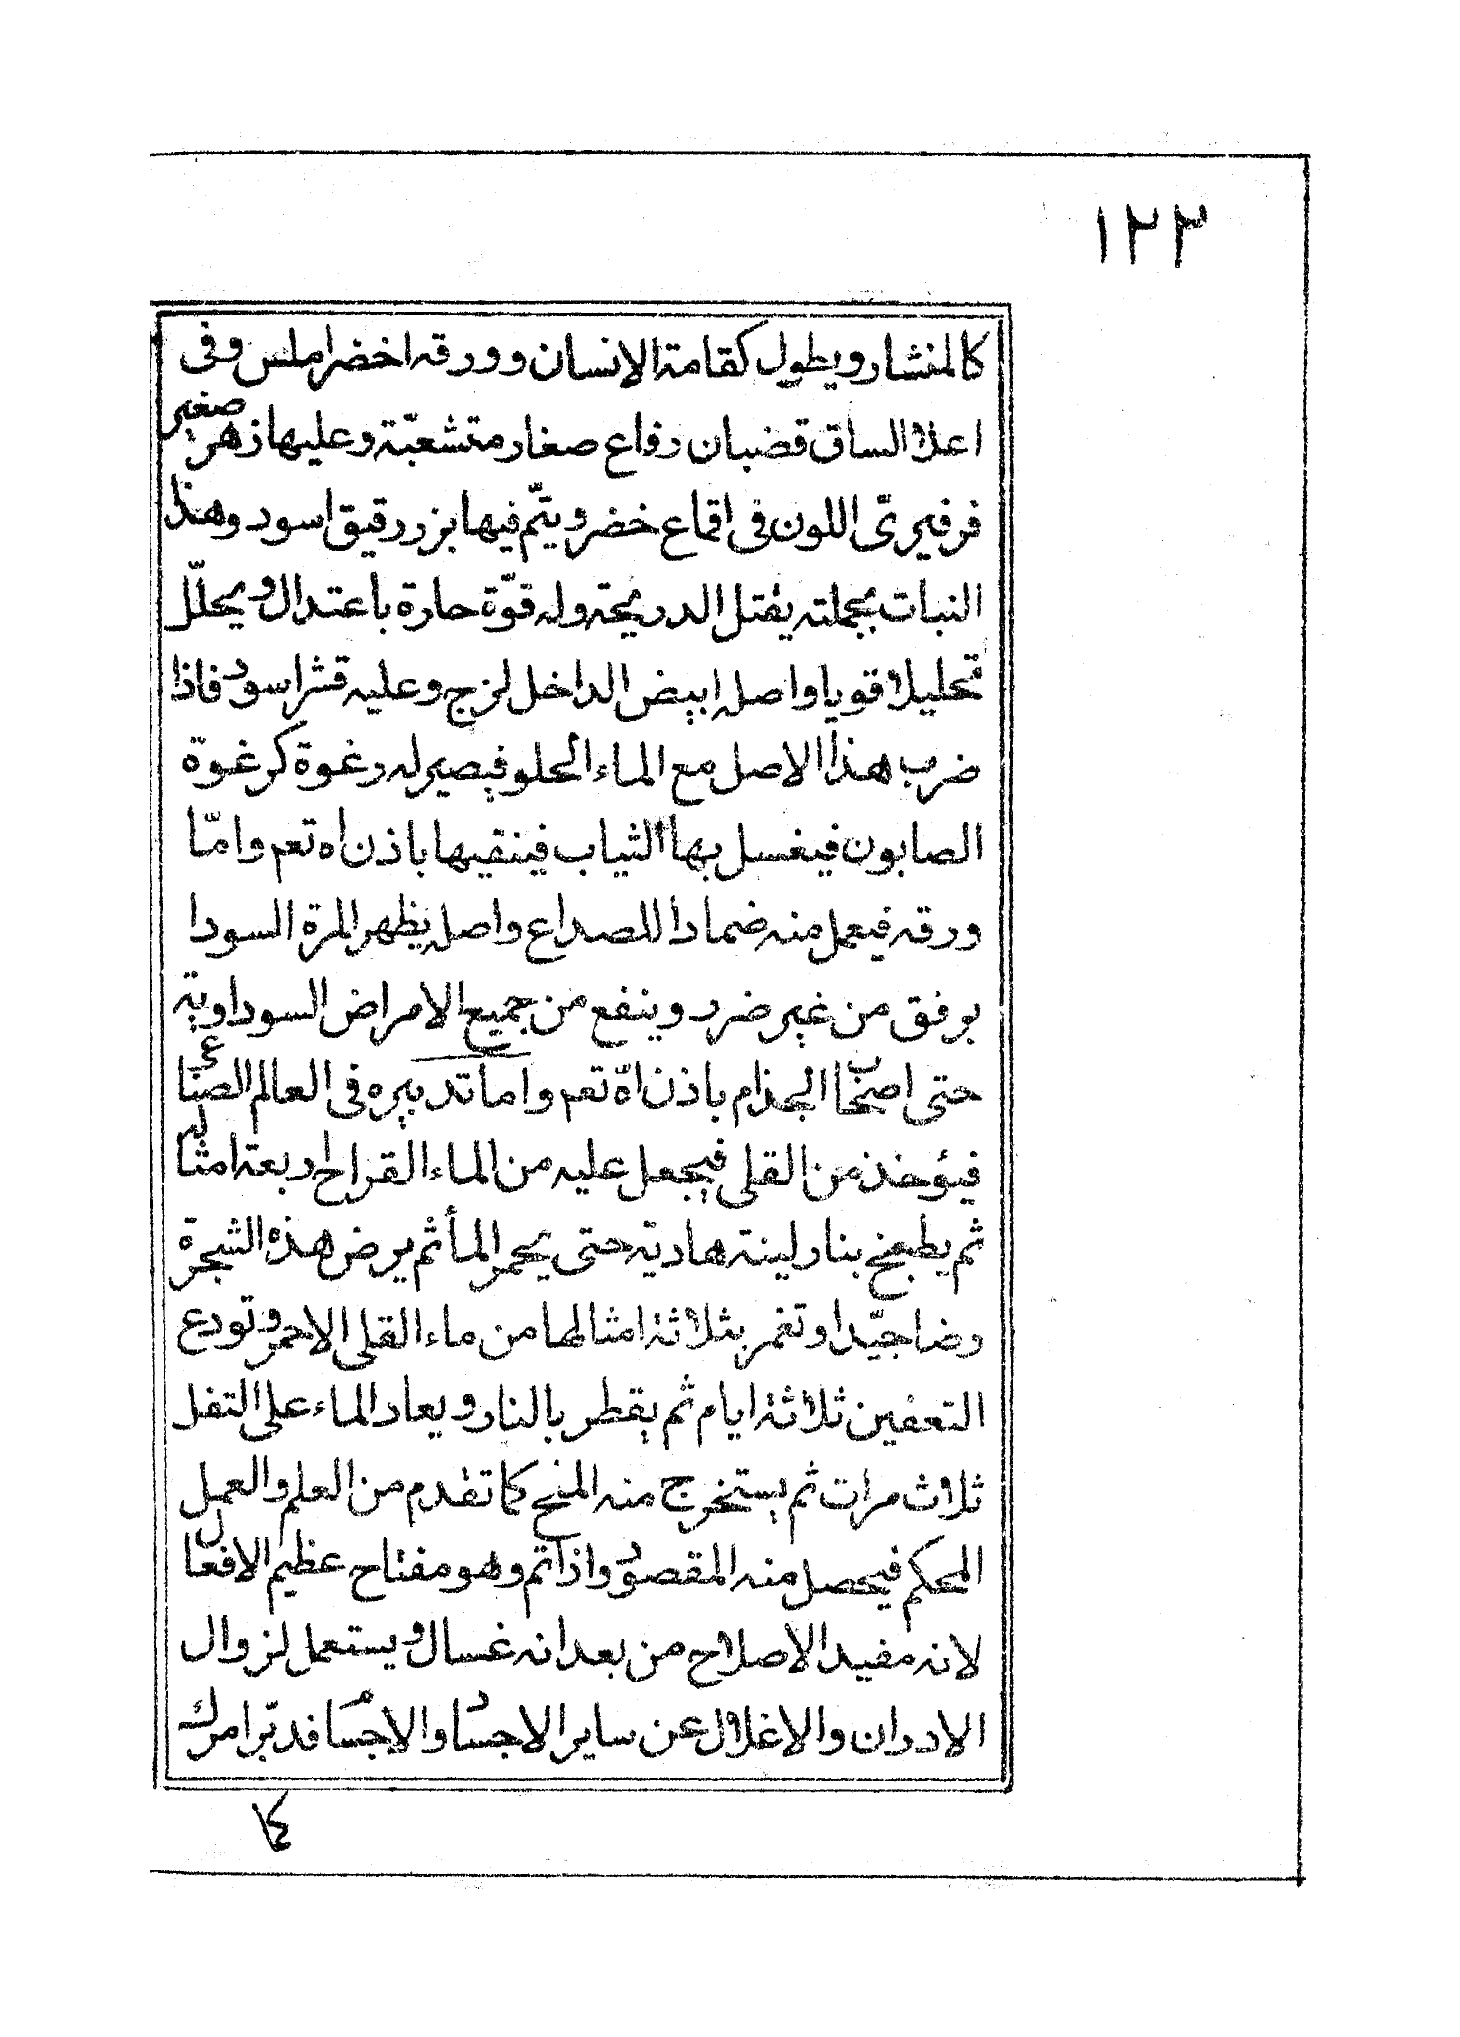 ١٢٢
كالمنشار ويطول كقامة الانسان وورقه اخضر املس وفى
اعلا الساق قضبان رفاع صغار متشعبّة وعليها زهر صغير
فرفيرىّ اللون فى اقماع خضر ويتّم فيها بزر رقيق اسود وهذا
النبات بجملته يقتل الدريحة وله قوّة حارة باعتدال ويحلّل
تحليلا قويا واصله ابيض الداخل لزج وعليه قشر اسود فاذا
ضرب هذا الاصل مع الماء الحلو فيصير له رغوة كرغوة
الصابون فيغسل بها الثياب فينقيها باذن اه تعم وامّا
ورقه فيعمل منه ضمادا للصداع واصله يظهر المرة السودا
برفق من غير ضرر وينفع من جميع الامراض السوداوية
حتى اصحاب الجذام باذن اه تعم واما تدبيره فى العالم الصناعى
فيؤخذ من القلى فيجعل عليه من الماء القراح اربعة امثاله
ثم يطبخ بنار لينة هادية حتى يحمر المأ ثم يرض هذه الشجرة
رضا جيّدا وتغمر بثلاثة امثالها من ماء القلى الاحمر وتودع
التعفين ثلاثة ايام ثم يقطر بالنار ويعاد الماء على التفل
ثلاث مرات ثم يستخرج منه الملح كما تقدم من العلم والعمل
المحكم فيحصل منه المقصود واذا تم وهو مفتاح عظيم الافعال
لانه مفيد الاصلاح من بعد انه غسال ويستعمل لزوال
الادران والاغلال عن ساير الاجساد والاجسام فدبّر امرك
كما